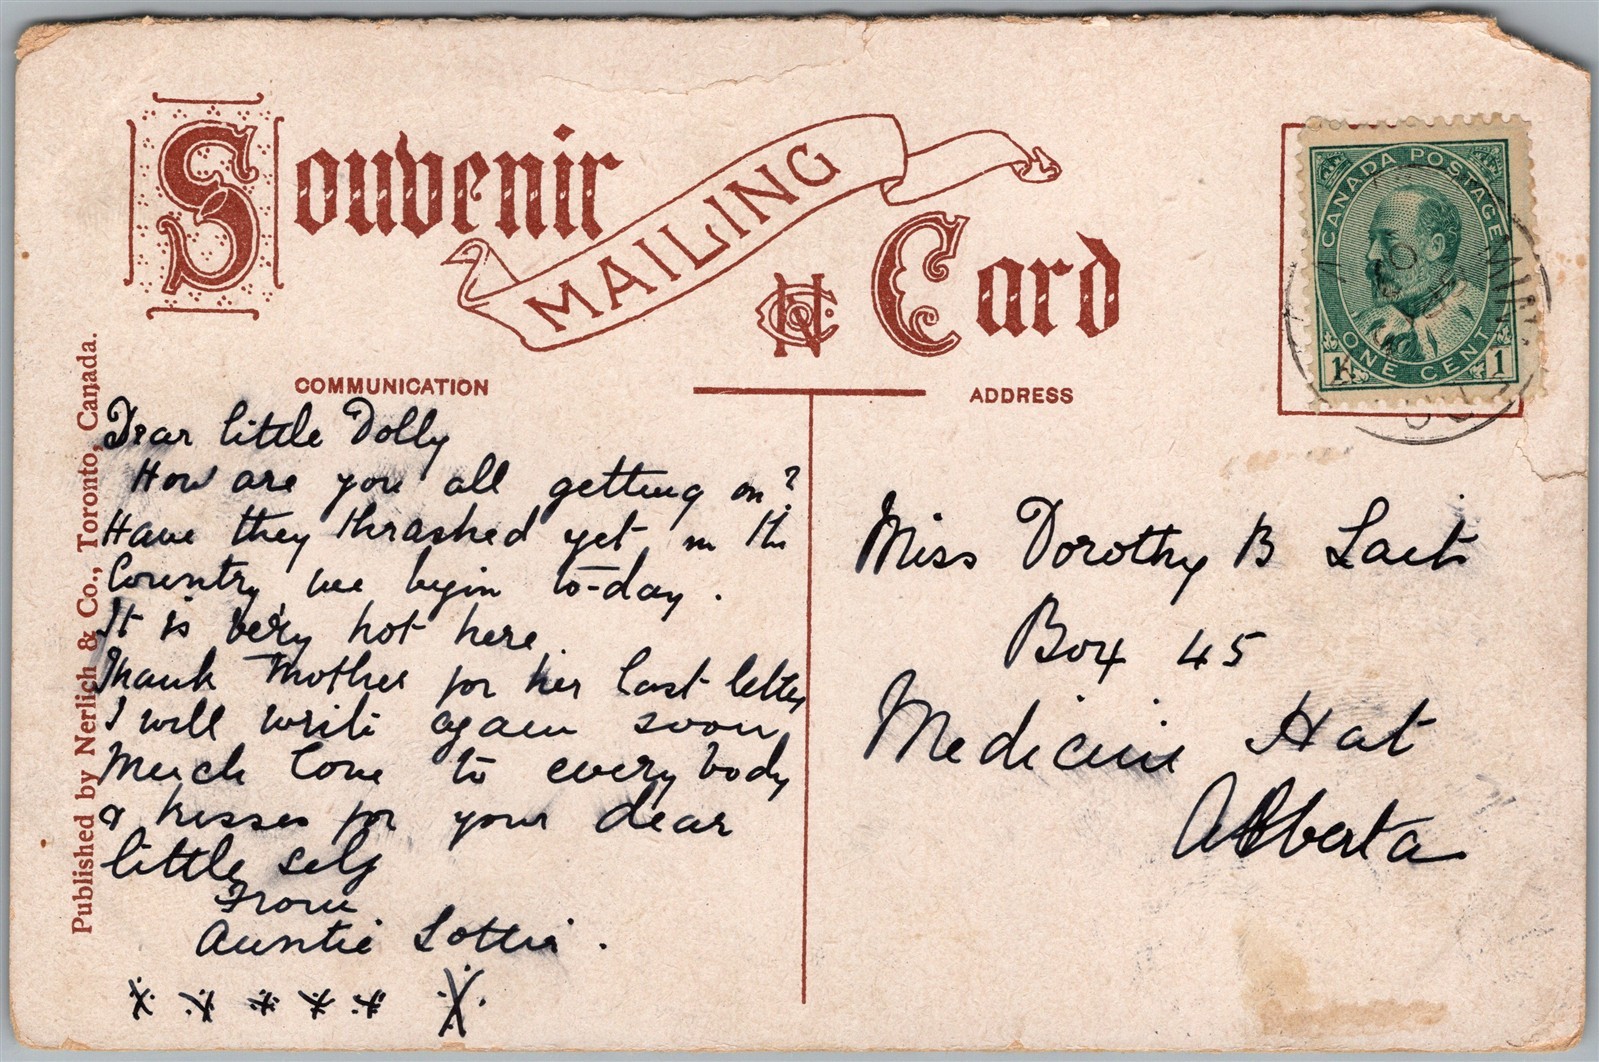 Souvenir
MAILING
Card
COMMUNICATION
ADDRESS
CANADA POSTAGE
ONE CENT
1 1
Published by Nerlich & Co., Toronto, Canada.
Dear little Dolly
How are you all getting on?
Have they thrashed yet in the
Country we begin to-day.
It is very hot here
Thank Mother for her last letter
I will write again soon
Much love to every body
& kisses for your dear
little self
From
Auntie Lottie.
Miss Dorothy B
Box 45
Medicine Hat
Alberta